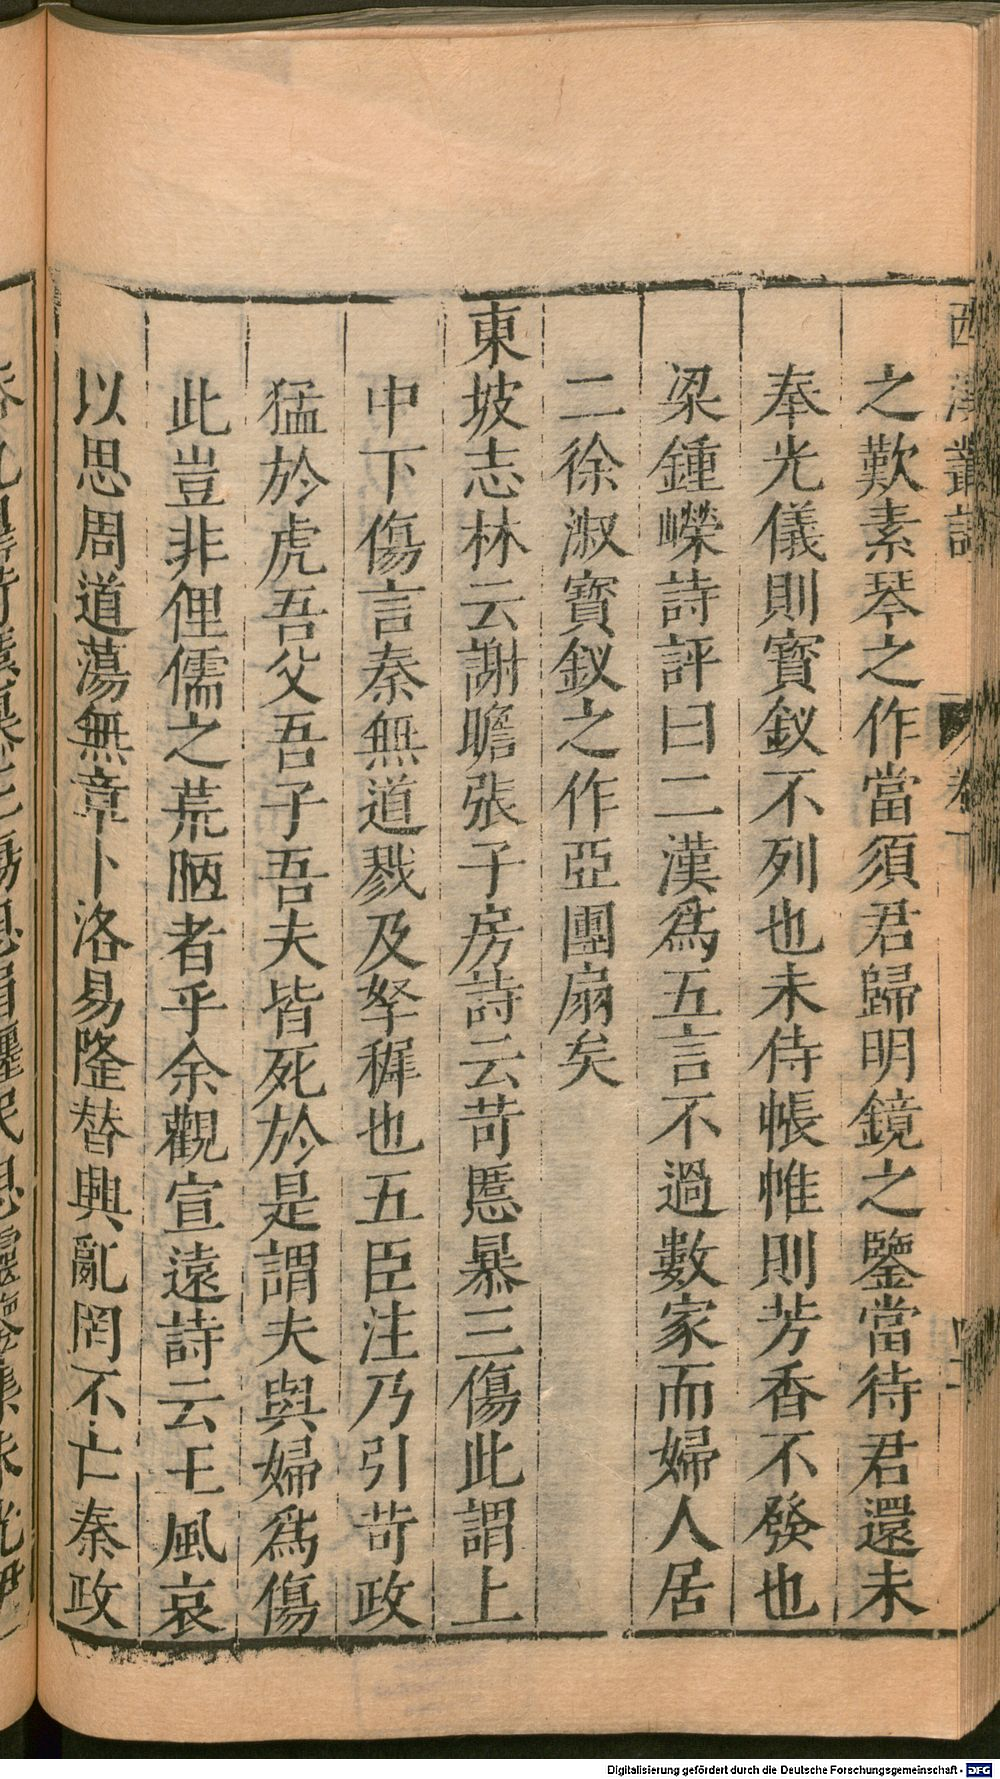 西溪叢語
卷下
之歎素琴之作當須君歸明鏡之鑒當待君還未
奉光儀則寳釵不列也未侍帳帷則芳香不發也
梁鍾嶸詩評曰二漢爲五言不過數家而婦人居
二徐淑寳釵之作亞團扇矣
東坡志林云謝瞻張子房詩云苛慝暴三傷此謂上
中下傷言秦無道戮及孥穉也五臣注乃引苛政
猛於虎吾父吾子吾夫皆死於是謂夫與婦爲傷
此豈非俚儒之荒陋者乎余觀宣遠詩云王風哀
以思周道蕩無章卜洛易隆替興亂罔不亡秦政
Digitalisierung gefördert durch die Deutsche Forschungsgemeinschaft - DFG